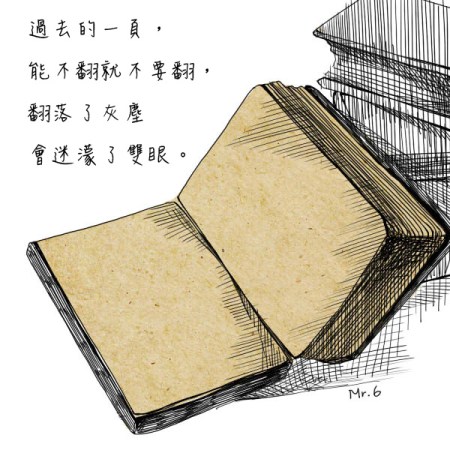 過去的一頁，
能不翻就不要翻，
翻落了灰塵
會迷濛了雙眼。
Mr.6